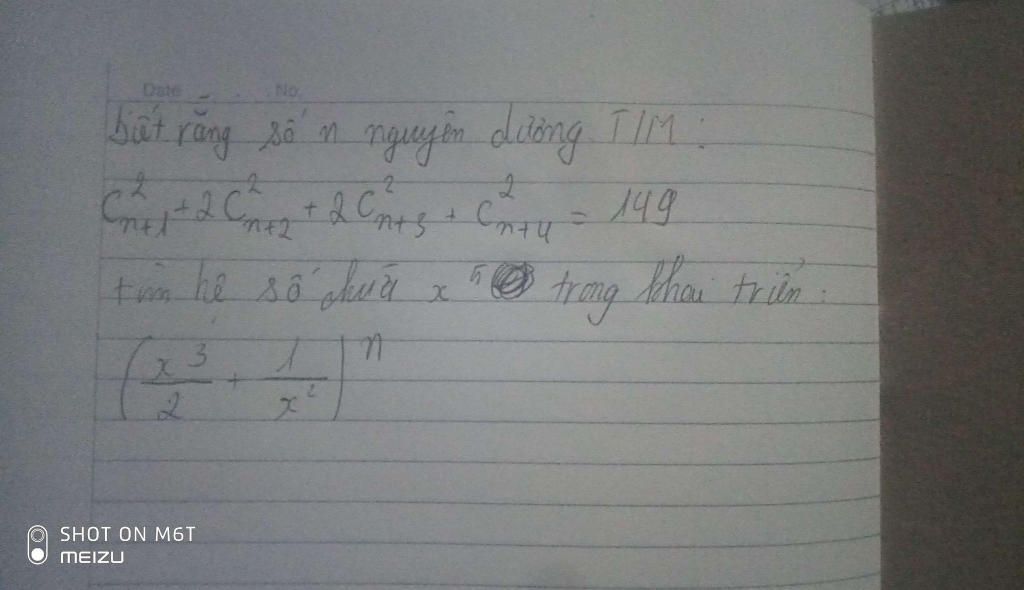 Date No.
biết rằng số n nguyên dương T/M :
C²ₙ₊₁ + 2C²ₙ₊₂ + 2C²ₙ₊₃ + C²ₙ₊₄ = 149
tìm hệ số chứa x⁵ trong khai triển :
(x³/2 + 1/x²)ⁿ
SHOT ON M6T
MEIZU